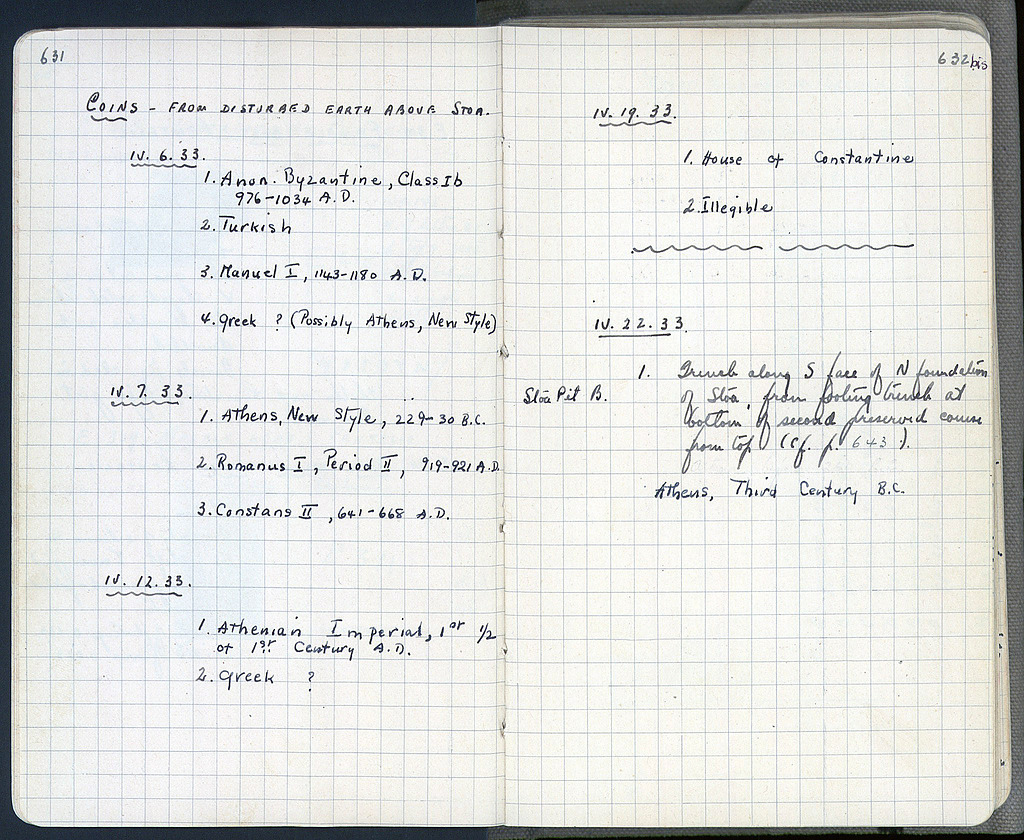 631
COINS - FROM DISTURBED EARTH ABOVE STOA.
IV. 6. 33.
1. Anon. Byzantine, Class Ib
976-1034 A.D.
2. Turkish
3. Manuel I, 1143-1180 A.D.
4. Greek ? (Possibly Athens, New Style)
IV. 7. 33.
1. Athens, New Style, 229-30 B.C.
2. Romanus I, Period II, 919-921 A.D.
3. Constans II, 641-668 A.D.
IV. 12. 33.
1. Athenian Imperial, 1st 1/2
of 1st Century A.D.
2. Greek ?
632 bis
IV. 19. 33.
1. House of Constantine
2. Illegible
IV. 22. 33.
Stoa Pit B.
1. Trench along S face of N foundation
of Stoa, from footing trench at
bottom of second preserved course
from top (cf. p. 643).
Athens, Third Century B.C.